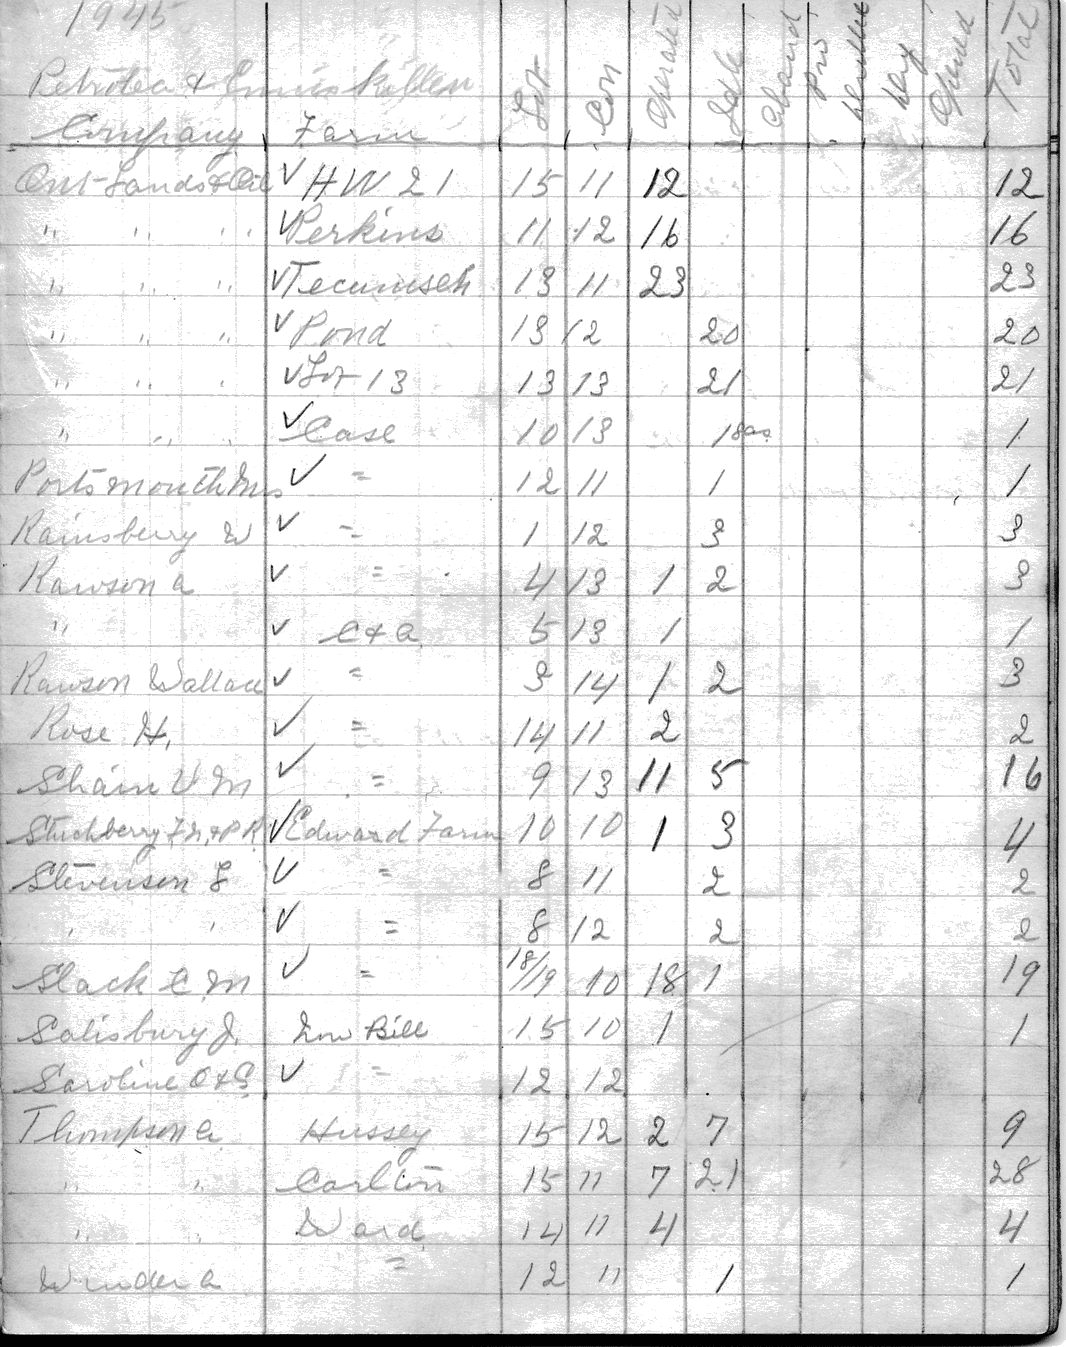 1945
Petrolea & Enniskillen
Company Farm Lot Con Operated Idle Aband Drilled Dry Opened Total
Ont-Lands & Oil ✓ HW 21 15 11 12 12
" " " ✓ Perkins 11 12 16 16
" " " ✓ Tecumseh 13 11 23 23
" " " ✓ Pond 13 12 20 20
" " " ✓ Lot 13 13 13 21 21
" " " ✓ Case 10 13 1 gas 1
Portsmouth Mrs ✓ = 12 11 1 1
Rainsberry W ✓ = 1 12 3 3
Rawson A ✓ = 4 13 1 2 3
" ✓ C & A 5 13 1 1
Rawson Wallace ✓ = 3 14 1 2 3
Rose H. ✓ = 14 11 2 2
Shain V M ✓ = 9 13 11 5 16
Stuchberry F.N. & P.R. ✓ Edward Farm 10 10 1 3 4
Stevenson L ✓ = 8 11 2 2
" " ✓ = 8 12 2 2
Slack E M ✓ = 18/19 10 18 1 19
Salisbury J. Bill 15 10 1 1
Saroline O & G ✓ = 12 12
Thompson A Hussey 15 12 2 7 9
" " Carlton 15 11 7 21 28
" " Ward 14 11 4 4
Winder A = 12 11 1 1